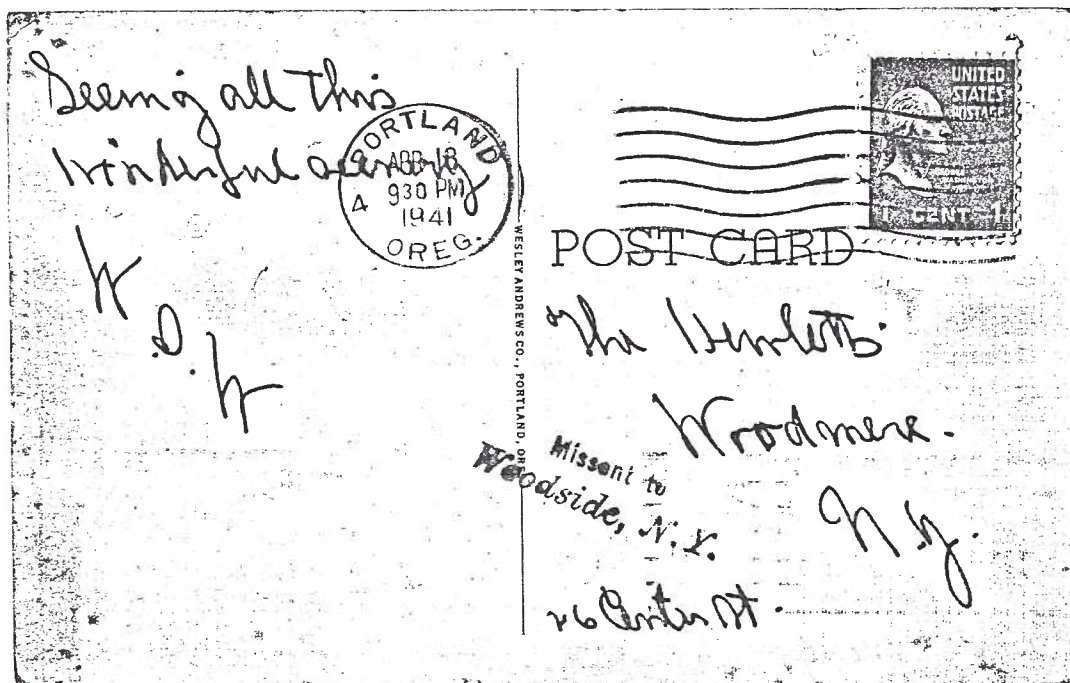 Seeing all This
Wonderful scenery
W
D.
W
PORTLAND
APR 13
930 PM
1941
OREG.
4
WESLEY ANDREWS CO., PORTLAND, ORE.
UNITED
STATES
POSTAGE
1 CENT 1
POST CARD
The Hewletts
Woodmere.
N.Y.
Missent to
Woodside, N.Y.
26 Center St.